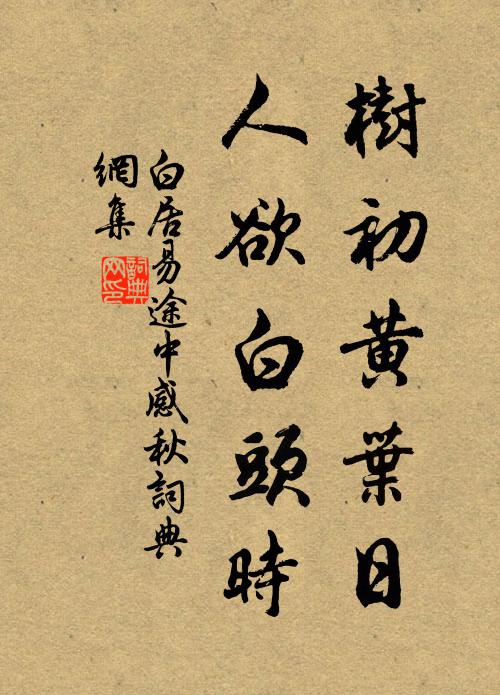 樹初黃葉日
人欲白頭時
白居易途中感秋詞典
網集
詞典
網印